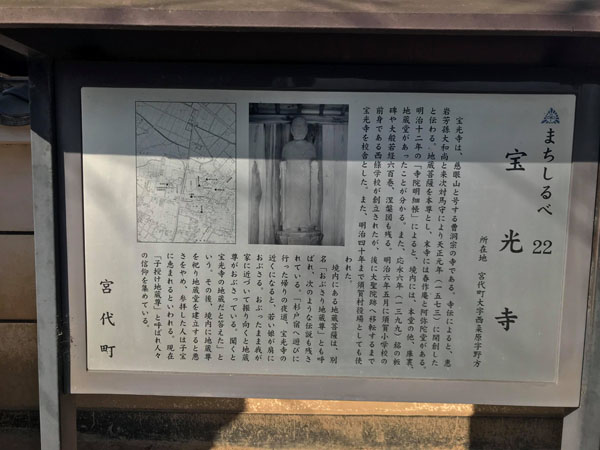 まちしるべ 22
宝光寺
所在地 宮代町大字西粂原字野方
宝光寺は、慈眼山と号する曹洞宗の寺である。寺伝によると、悳
岩芳孫大和尚と来次対馬守により天正元年(一五七三)に開創した
と伝わる。地蔵菩薩を本尊とし、末寺には春作庵と阿弥陀堂がある。
明治十二年の「寺院明細帳」によると、境内には、本堂の他、庫裏、
地蔵堂があったことが分かる。また、応永六年(一三九九)銘の板
碑や大般若経六百巻、涅槃図も残る。明治六年五月に須賀小学校の
前身である西條学校が創立されたが、後に大聖院跡へ移転するまで
宝光寺を校舎とした。また、明治四十年まで須賀村役場としても使
われた。
境内にある地蔵菩薩は、別
名「おぶさり地蔵尊」とも呼
ばれ、次のような伝説も残さ
れている。「杉戸宿へ遊びに
行った帰りの夜道、宝光寺の
近くになると、若い娘が肩に
おぶさる。おぶったまま我が
家に近づいて振り向くと地蔵
尊がおぶさっている。聞くと
宝光寺の地蔵だと答えた」と
いう。その後、境内に地蔵尊
を祀り地蔵堂を建立すると悪
さをやめ、参拝した人は子宝
に恵まれるといわれる。現在
「子授け地蔵尊」と呼ばれ人々
の信仰を集めている。
宮代町